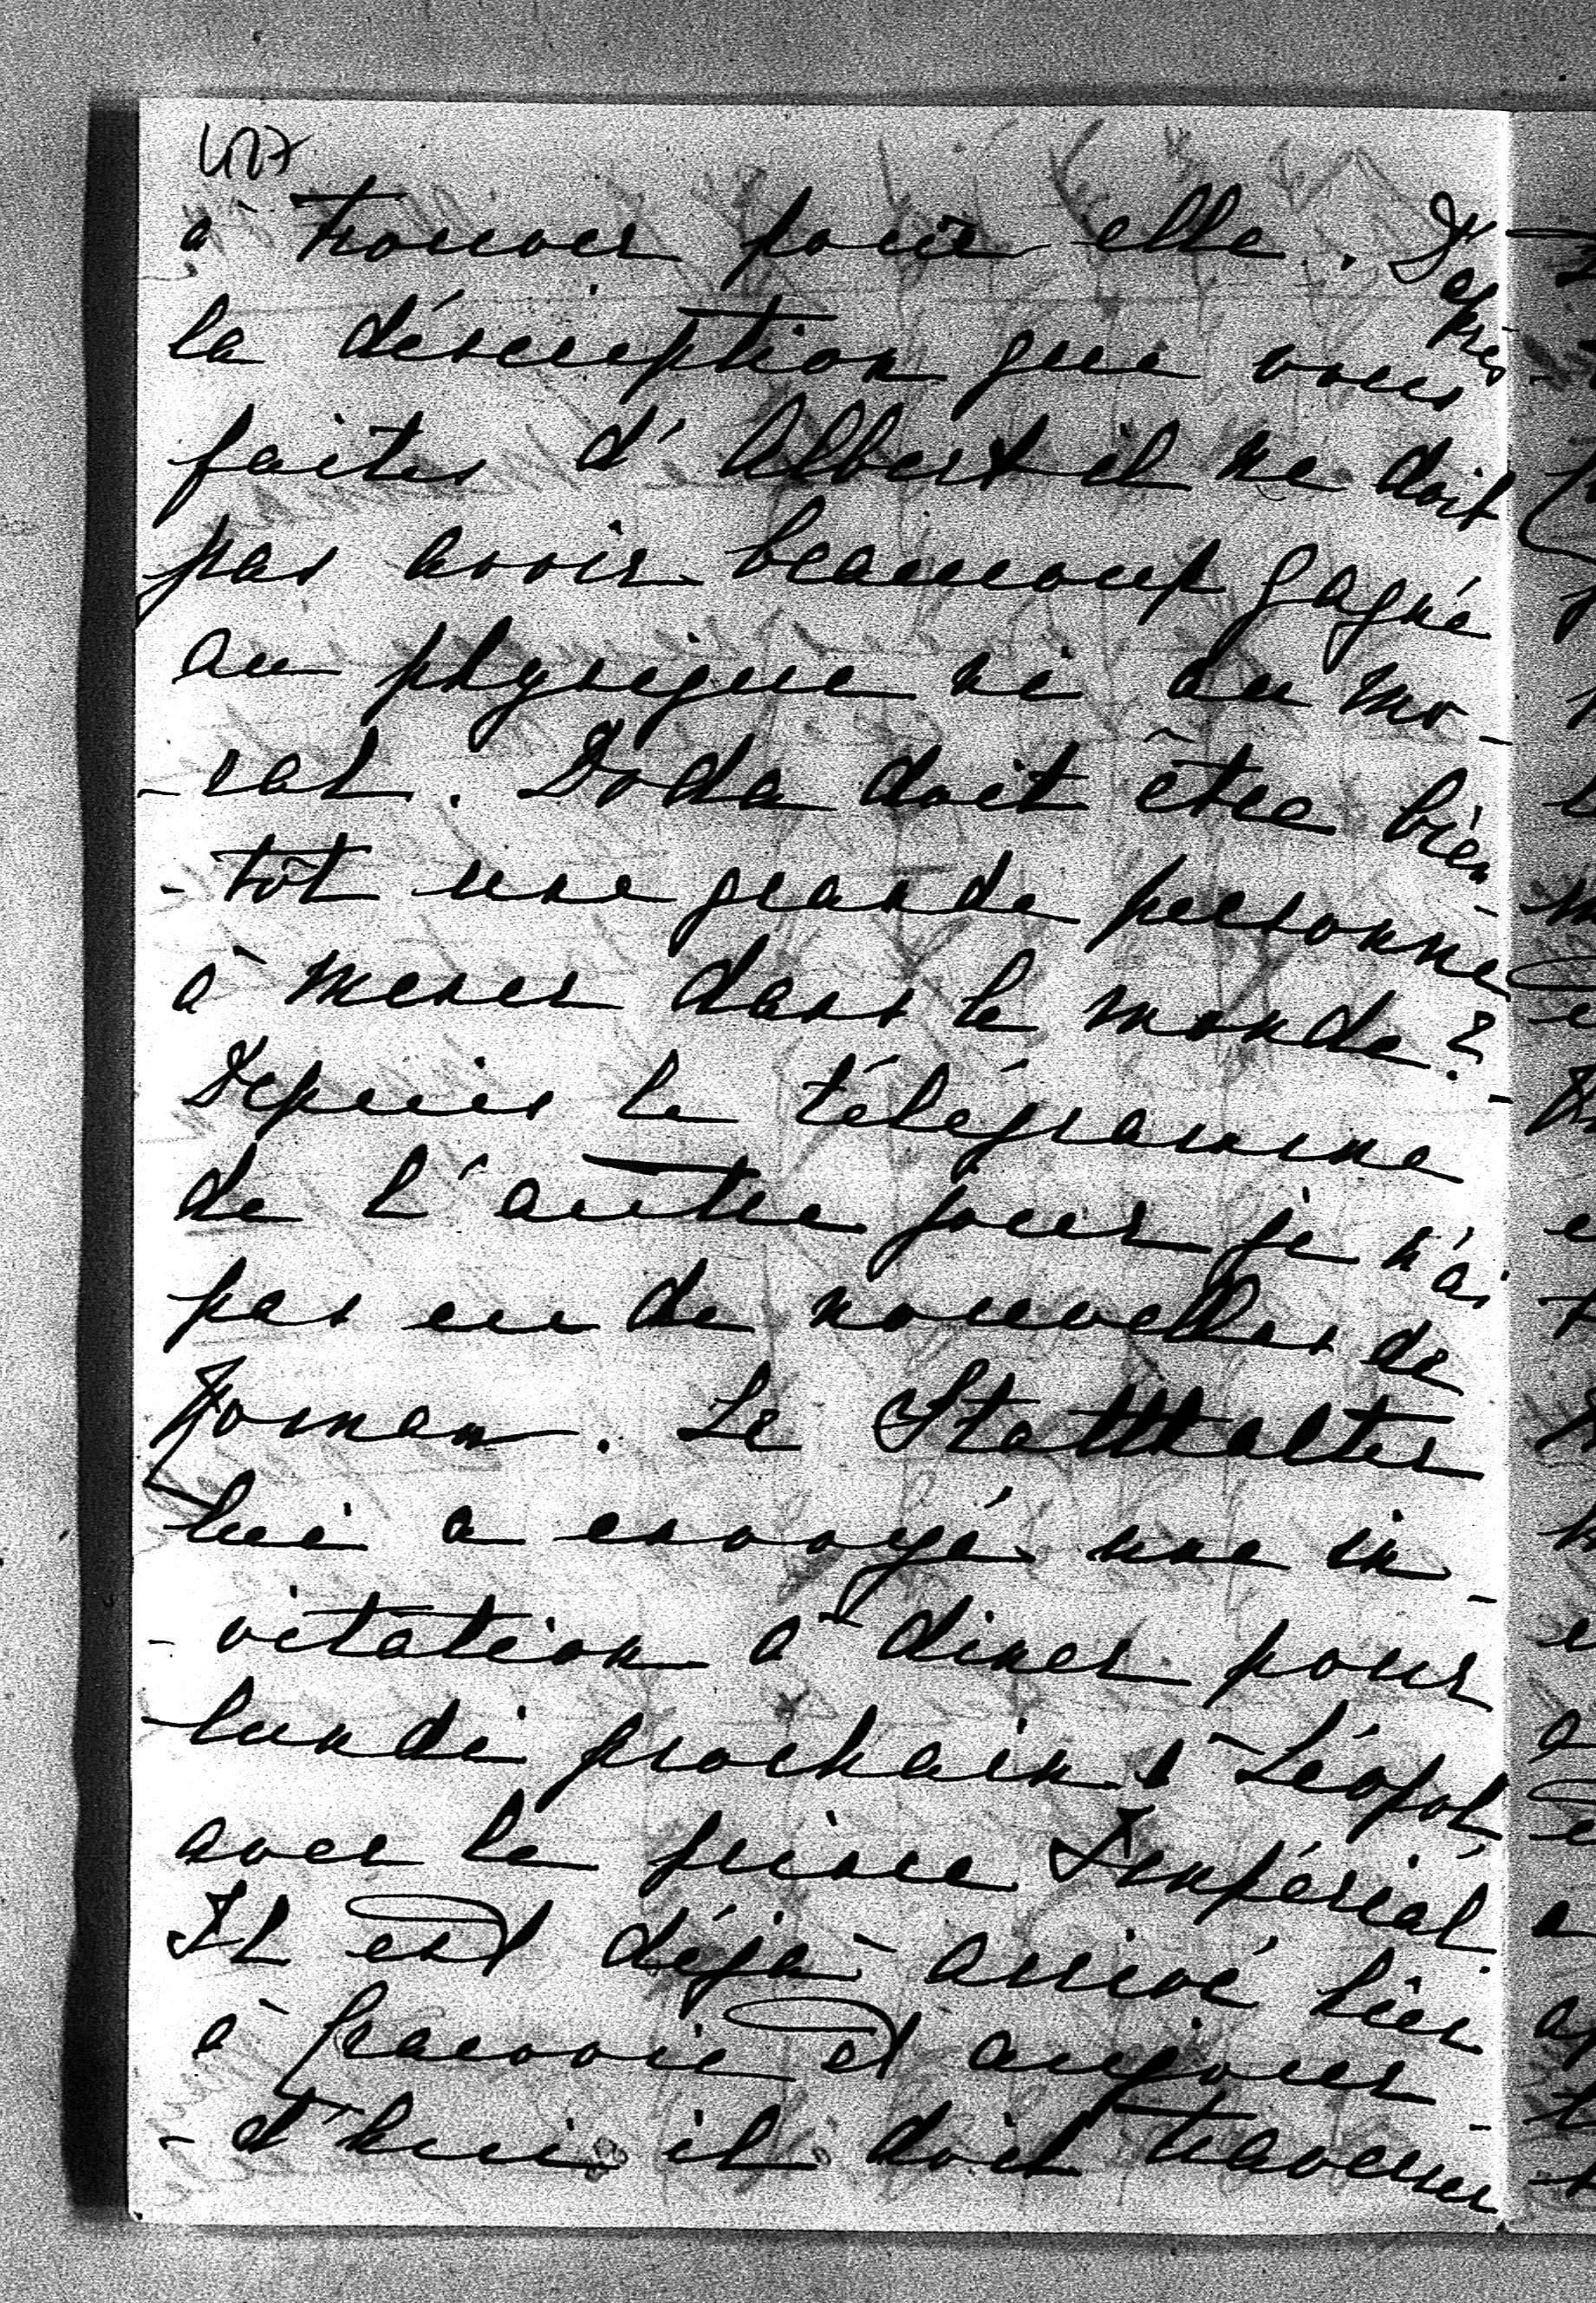 407
à trouver pour elle. D'après
la déscription que vous
faites d'Albert il ne doit
pas avoir beaucoup gagné
au physique ni au mo-
-ral. Doda doit être bien-
-tôt une grande personne
à mener dans le monde?
Depuis le télégramme
de l'autre jour je n'ai
pas eu de nouvelles de
Le Statthalter
lui a envoyé une in-
-vitation à diner pour
lundi prochain à Léopol
avec le prince Impérial.
Il est déjà arrivé hier
à Cracovie et aujour-
-d'hui il doit traverser